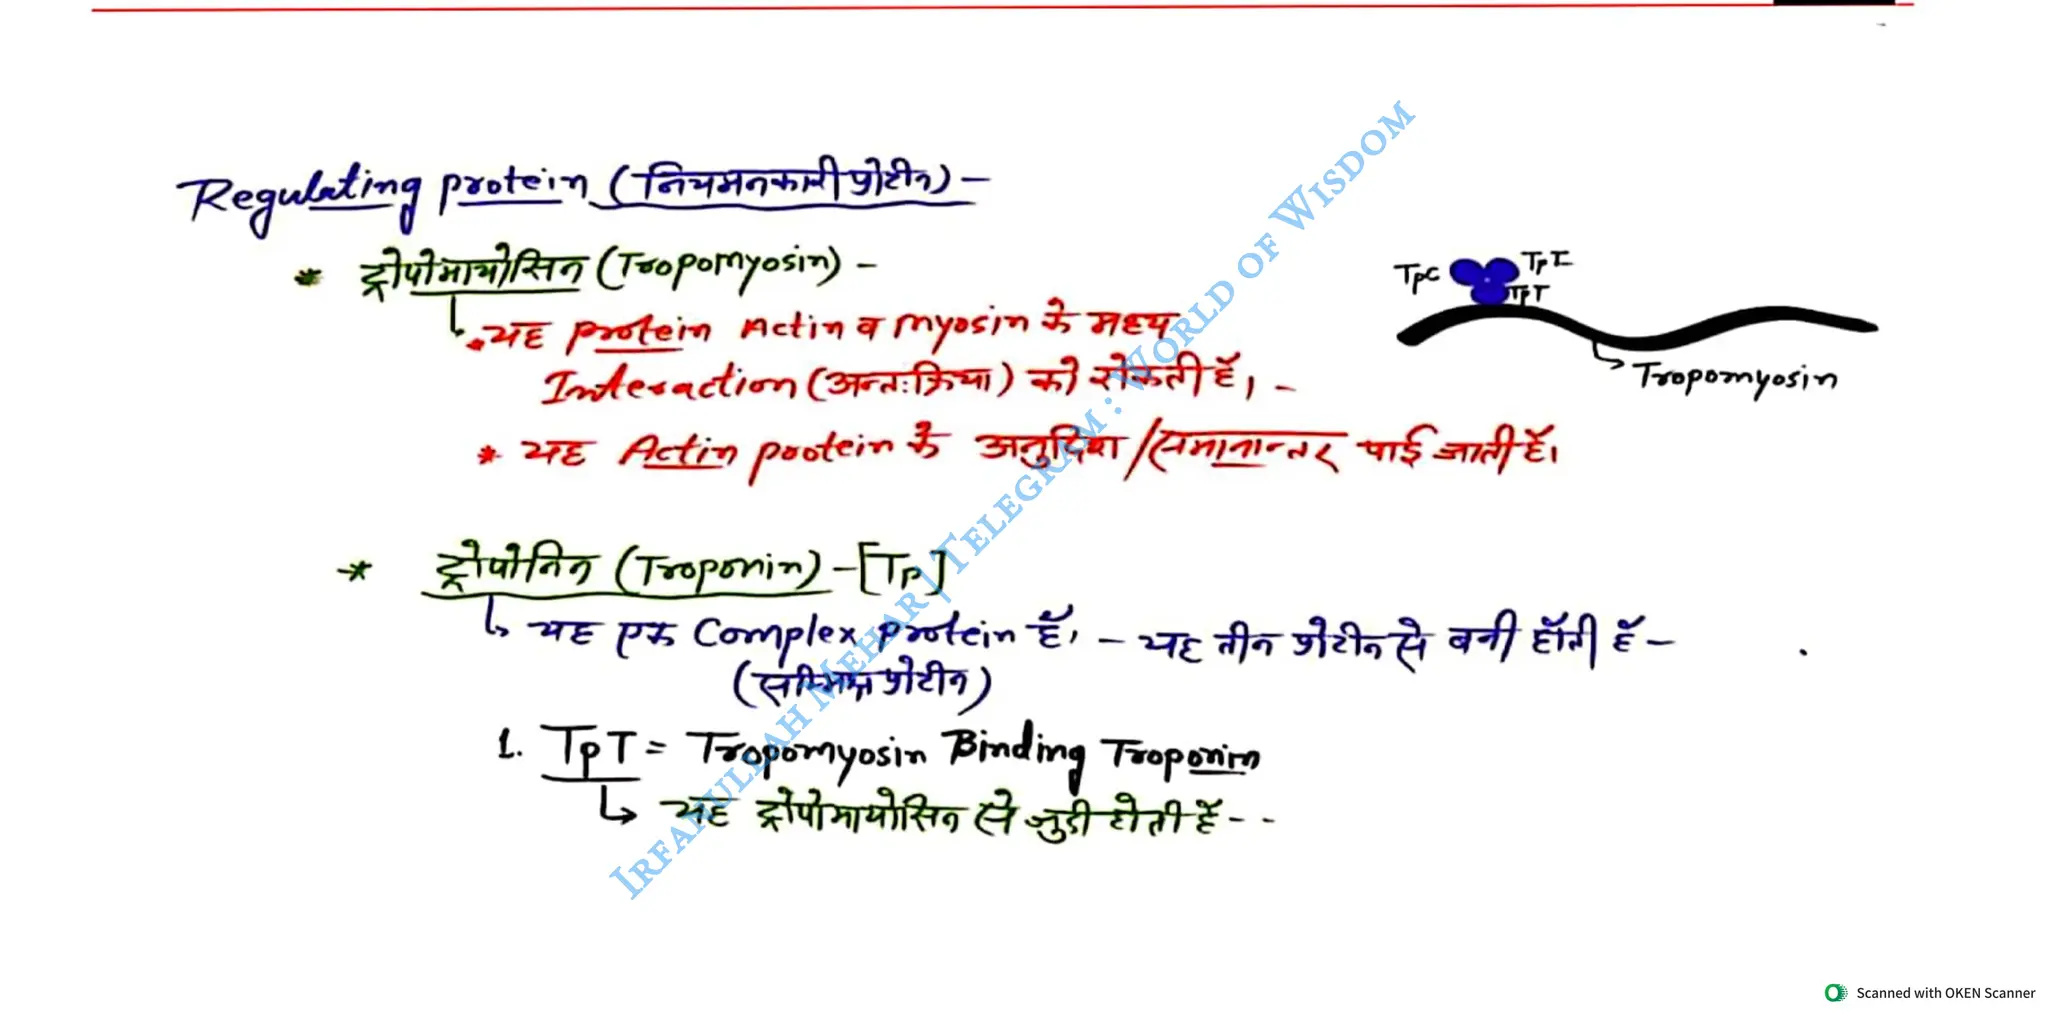 Regulating protein (नियमनकारी प्रोटीन) –
* ट्रोपोमायोसिन (Tropomyosin) –
• यह protein Actin व myosin के मध्य
Interaction (अन्तःक्रिया) को रोकती हैं। –
* यह Actin protein के अनुदिश / समानान्तर पाई जाती हैं।
TpC TpI
TpT
Tropomyosin
* ट्रोपोनिन (Troponin) – [Tp]
यह एक Complex protein हैं, – यह तीन प्रोटीन से बनी होती हैं –
(सम्मिश्र प्रोटीन)
1. TpT = Tropomyosin Binding Troponin
यह ट्रोपोमायोसिन से जुडी होती हैं - -
IRFANULLAH MEHAR | TELEGRAM : WORLD OF WISDOM
Scanned with OKEN Scanner